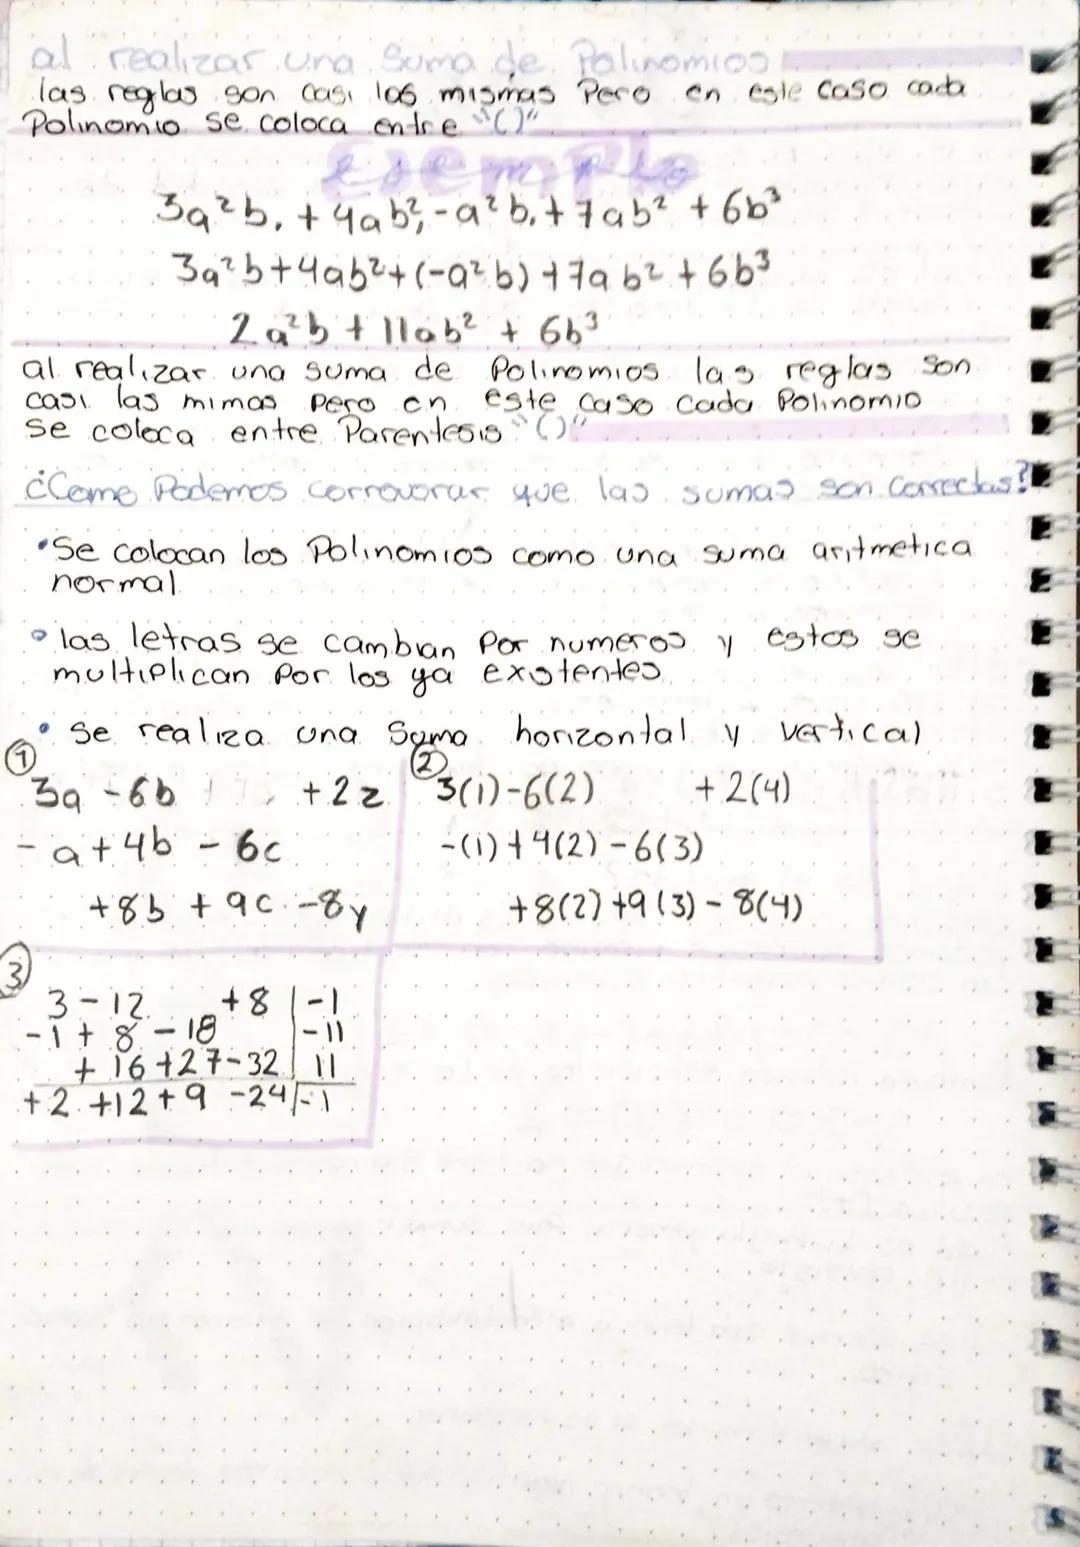 al realizar una Suma de Polinomios
las reglas son casi las mismas Pero en este caso cada
Polinomio se coloca entre "()"
ejemplo
3a²b, + 4ab², - a²b, + 7ab² + 6b³
3a²b + 4ab² + (-a²b) + 7ab² + 6b³
2a²b + 11ab² + 6b³
al realizar una suma de Polinomios las reglas son
casi las mimas pero en este caso cada Polinomio
se coloca entre Parentesis "()"
¿Como Podemos corrovorar que las sumas son correctas?
• Se colocan los Polinomios como una suma aritmetica
normal
• las letras se cambian Por numeros y estos se
multiplican Por los ya existentes
• se realiza una Suma horizontal y vertical
①
3a - 6b + 2z
- a + 4b - 6c
+ 8b + 9c - 8y
②
3(1) - 6(2) + 2(4)
-(1) + 4(2) - 6(3)
+ 8(2) + 9(3) - 8(4)
③
3 - 12 + 8 | -1
-1 + 8 - 18 | -11
+ 16 + 27 - 32 | 11
+2 +12 +9 -24 | -1